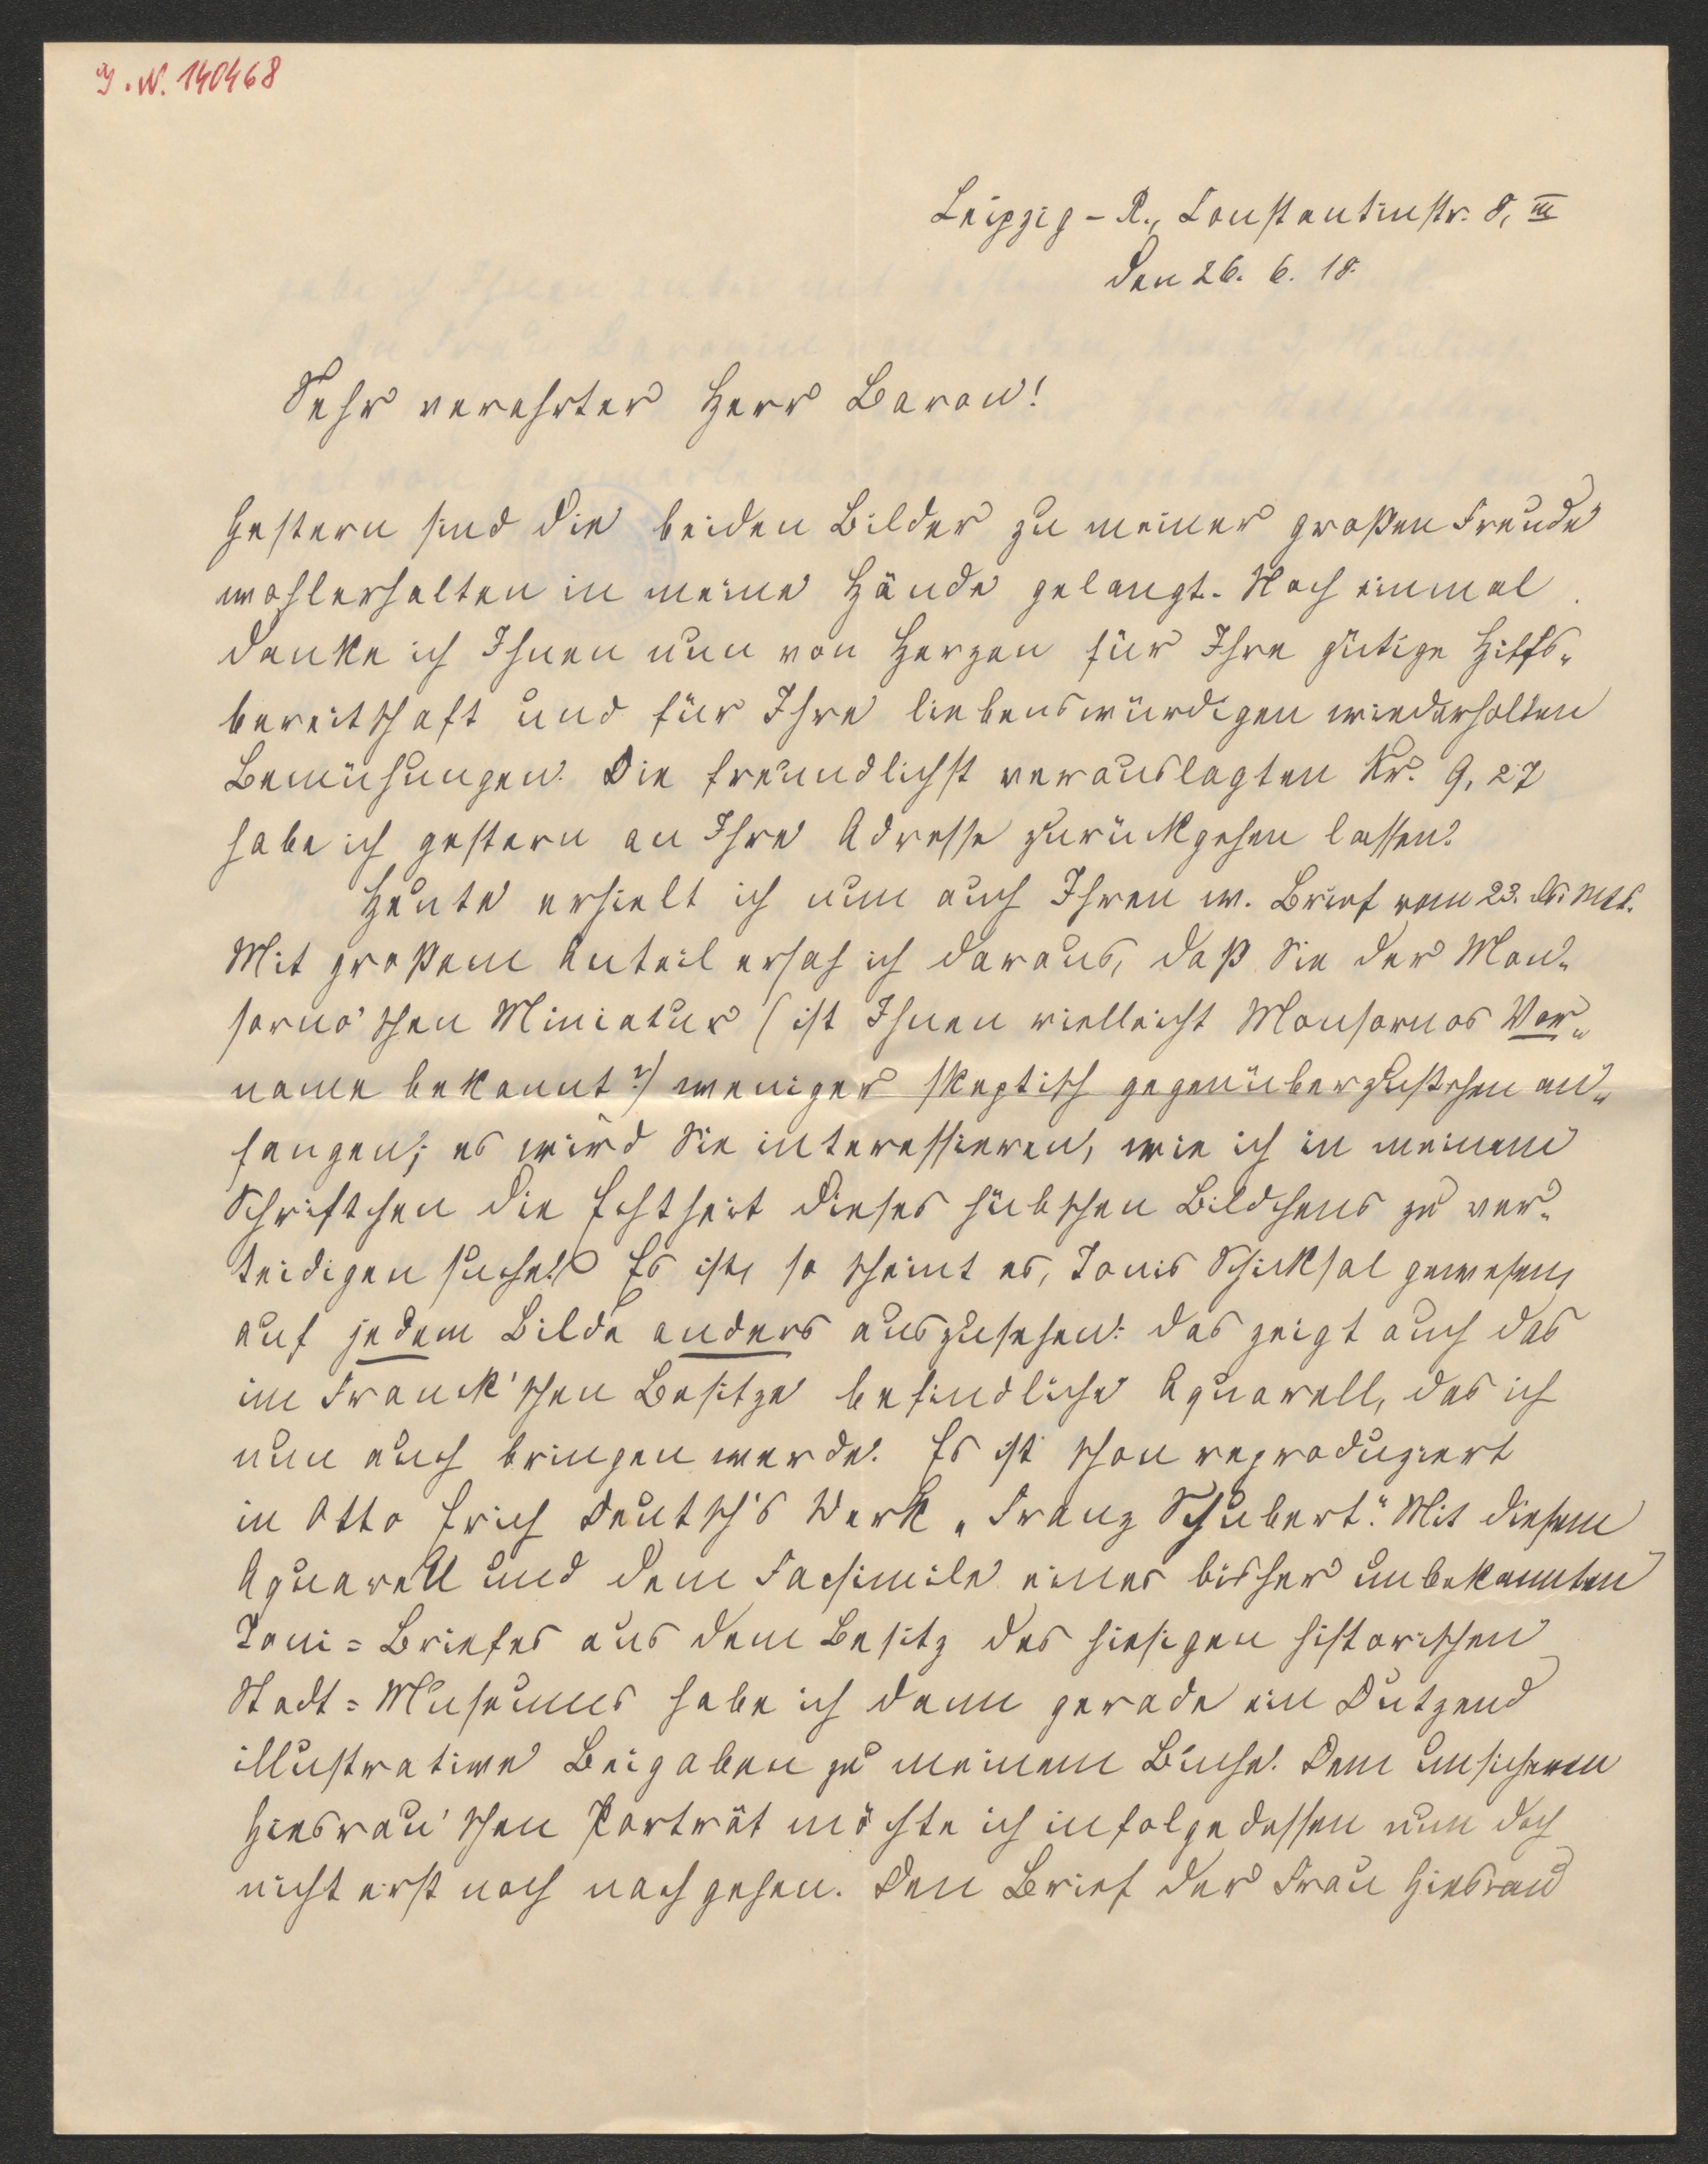 J. N. 140468
Leipzig-R., Constantinstr. 8, III
den 26. 6. 18.
Sehr verehrter Herr Baron!
Gestern sind die beiden Bilder zu meiner großen Freude
wohlerhalten in meine Hände gelangt. Noch einmal
danke ich Ihnen nun von Herzen für Ihre gütige Hilfs-
bereitschaft und für Ihre liebenswürdigen wiederholten
Bemühungen. Die freundlichst verauslagten Kr. 9,27
habe ich gestern an Ihre Adresse zurückgehen lassen.
Heute erhielt ich nun auch Ihren w. Brief vom 23. ds. Mts.
Mit großem Anteil ersah ich daraus, daß Sie der Mon-
sorno'schen Miniatur (ist Ihnen vielleicht Monsornos Vor-
name bekannt?) weniger skeptisch gegenüberzustehen an-
fangen; es wird Sie interessieren, wie ich in meinem
Schriftchen die Echtheit dieses hübschen Bildchens zu ver-
teidigen suche! Es ist, so scheint es, Tonis Schicksal gewesen,
auf jedem Bilde anders auszusehen: das zeigt auch das
im Franck'schen Besitze befindliche Aquarell, das ich
nun auch bringen werde. Es ist schon reproduziert
in Otto Erich Deutsch's Werk „Franz Schubert“. Mit diesem
Aquarell und dem Facsimile eines bisher unbekannten
Toni=Briefes aus dem Besitz des hiesigen historischen
Stadt=Museums habe ich dann gerade ein Dutzend
illustrative Beigaben zu meinem Buche. Dem unsicheren
Hiesrau'schen Porträt möchte ich infolgedessen nun doch
nicht erst noch nachgehen. Den Brief der Frau Hiesrau